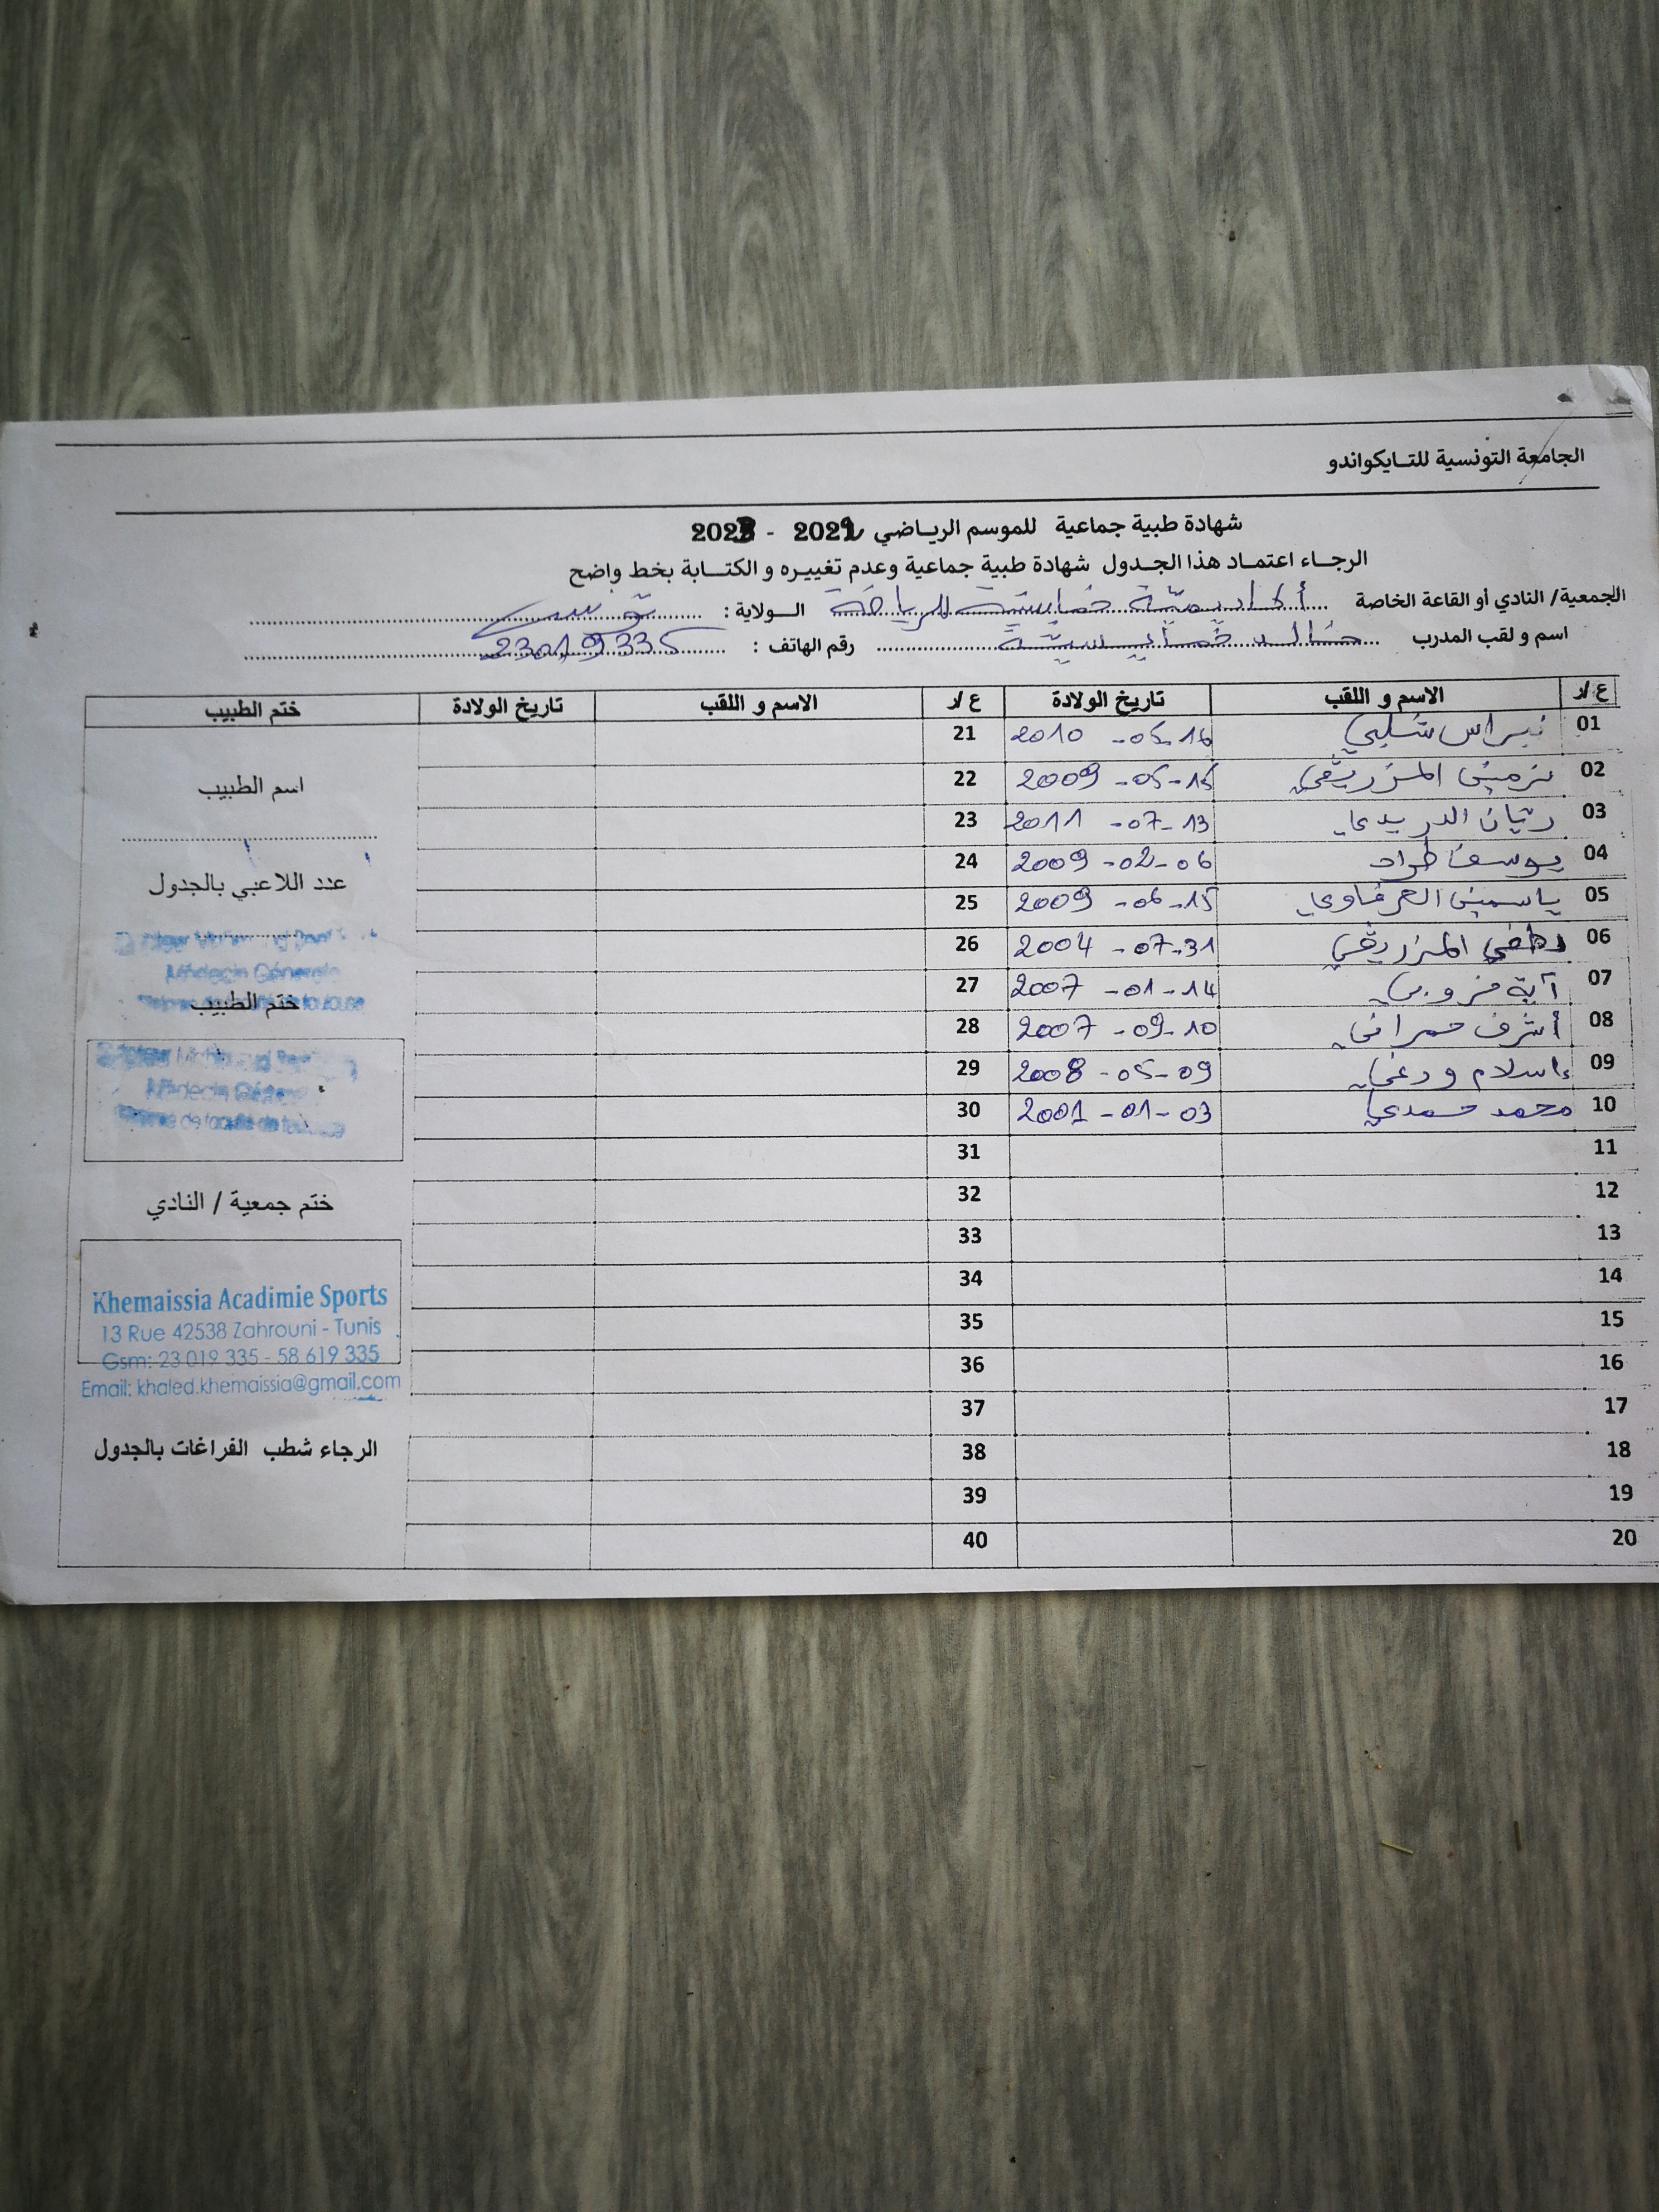 الجامعة التونسية للتايكواندو
شهادة طبية جماعية للموسم الرياضي 2022 - 2023
الرجاء اعتماد هذا الجدول شهادة طبية جماعية وعدم تغييره و الكتابة بخط واضح
الجمعية/ النادي أو القاعة الخاصة أكاديمية خمايسية للرياضة الولاية : تونس
اسم و لقب المدرب خالد خمايسية رقم الهاتف : 23019335
ع/ر الاسم و اللقب تاريخ الولادة ع/ر الاسم و اللقب تاريخ الولادة ختم الطبيب
01 نبراس شلبي 16-05-2010 21
02 نرمين المزريقي 15-05-2009 22
03 ريان الدريدي 13-07-2011 23
04 يوسف طراد 06-02-2009 24
05 ياسمين العرفاوي 15-06-2009 25
06 المزريقي 31-07-2004 26
07 آية 14-01-2007 27
08 أشرف حمراني 10-09-2007 28
09 إسلام ودغي 09-05-2008 29
10 محمد حمدي 03-01-2001 30
11 31
12 32
13 33
14 34
15 35
16 36
17 37
18 38
19 39
20 40
اسم الطبيب
عدد اللاعبي بالجدول
Médecin Générale
ختم الطبيب
Médecin
ختم جمعية / النادي
Khemaissia Acadimie Sports
13 Rue 42538 Zahrouni - Tunis
Gsm: 23 019 335 - 58 619 335
Email: khaled.khemaissia@gmail.com
الرجاء شطب الفراغات بالجدول